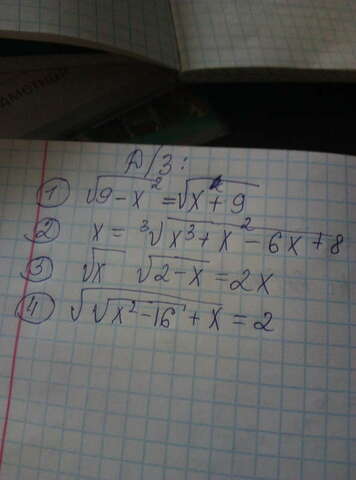 Д/З:
① √(9-x²) = √(x²+9)
② x = ³√(x³+x²-6x+8)
③ √x √(2-x) = 2x
④ √(√(x²-16)+x) = 2